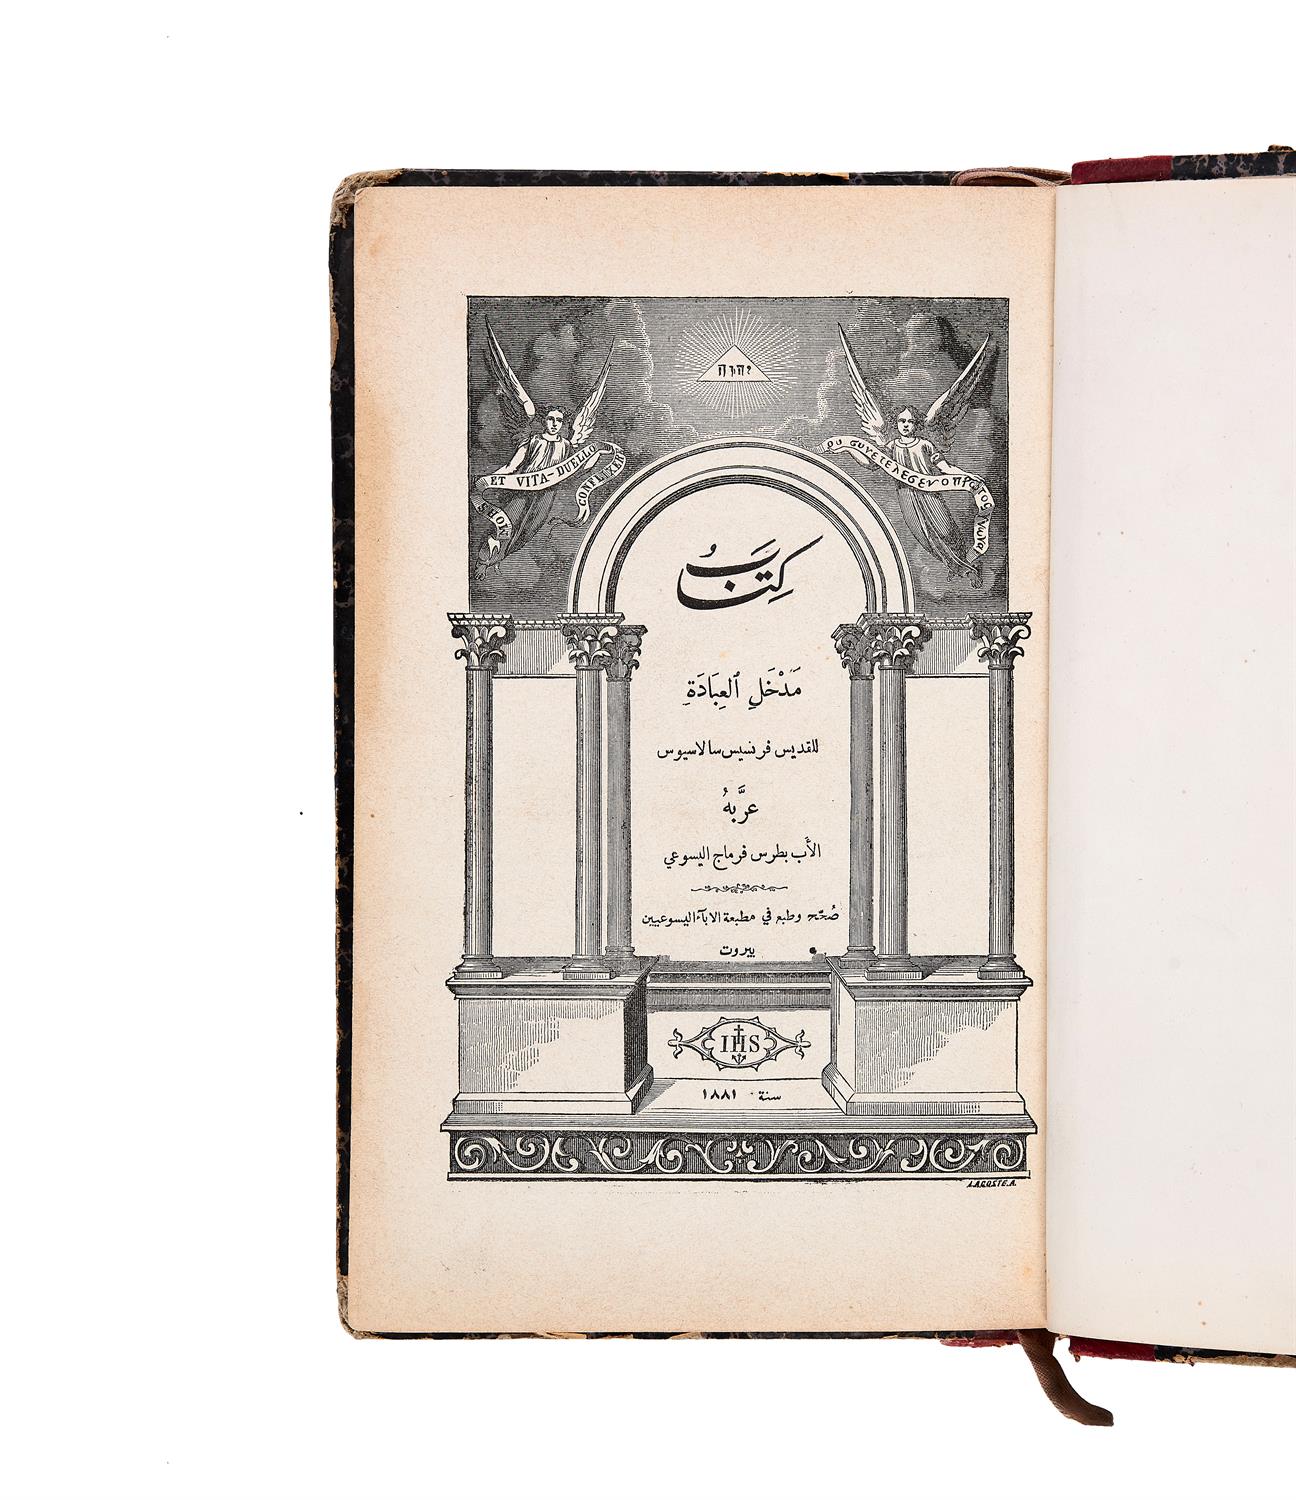 יהוה
MORS ET VITA-DUELLO CONFLIXERE
كِتَابُ
مَدْخَلِ ٱلعِبَادَةِ
للقديس فرنسيس سالاسيوس
عرَّبهُ
الأَب بطرس فرماج اليسوعي
صُحّح وطبع في مطبعة الابآء اليسوعيين
بيروت
IHS
سنة ١٨٨١